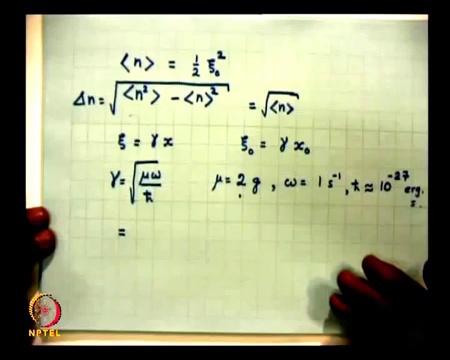 ⟨n⟩ = 1/2 ξ₀²
Δn = √(⟨n²⟩ - ⟨n⟩²) = √⟨n⟩
ξ = γ x ξ₀ = γ x₀
γ = √(μω/ħ) μ = 2 g , ω = 1 s⁻¹, ħ ≈ 10⁻²⁷ erg. s.
=
NPTEL